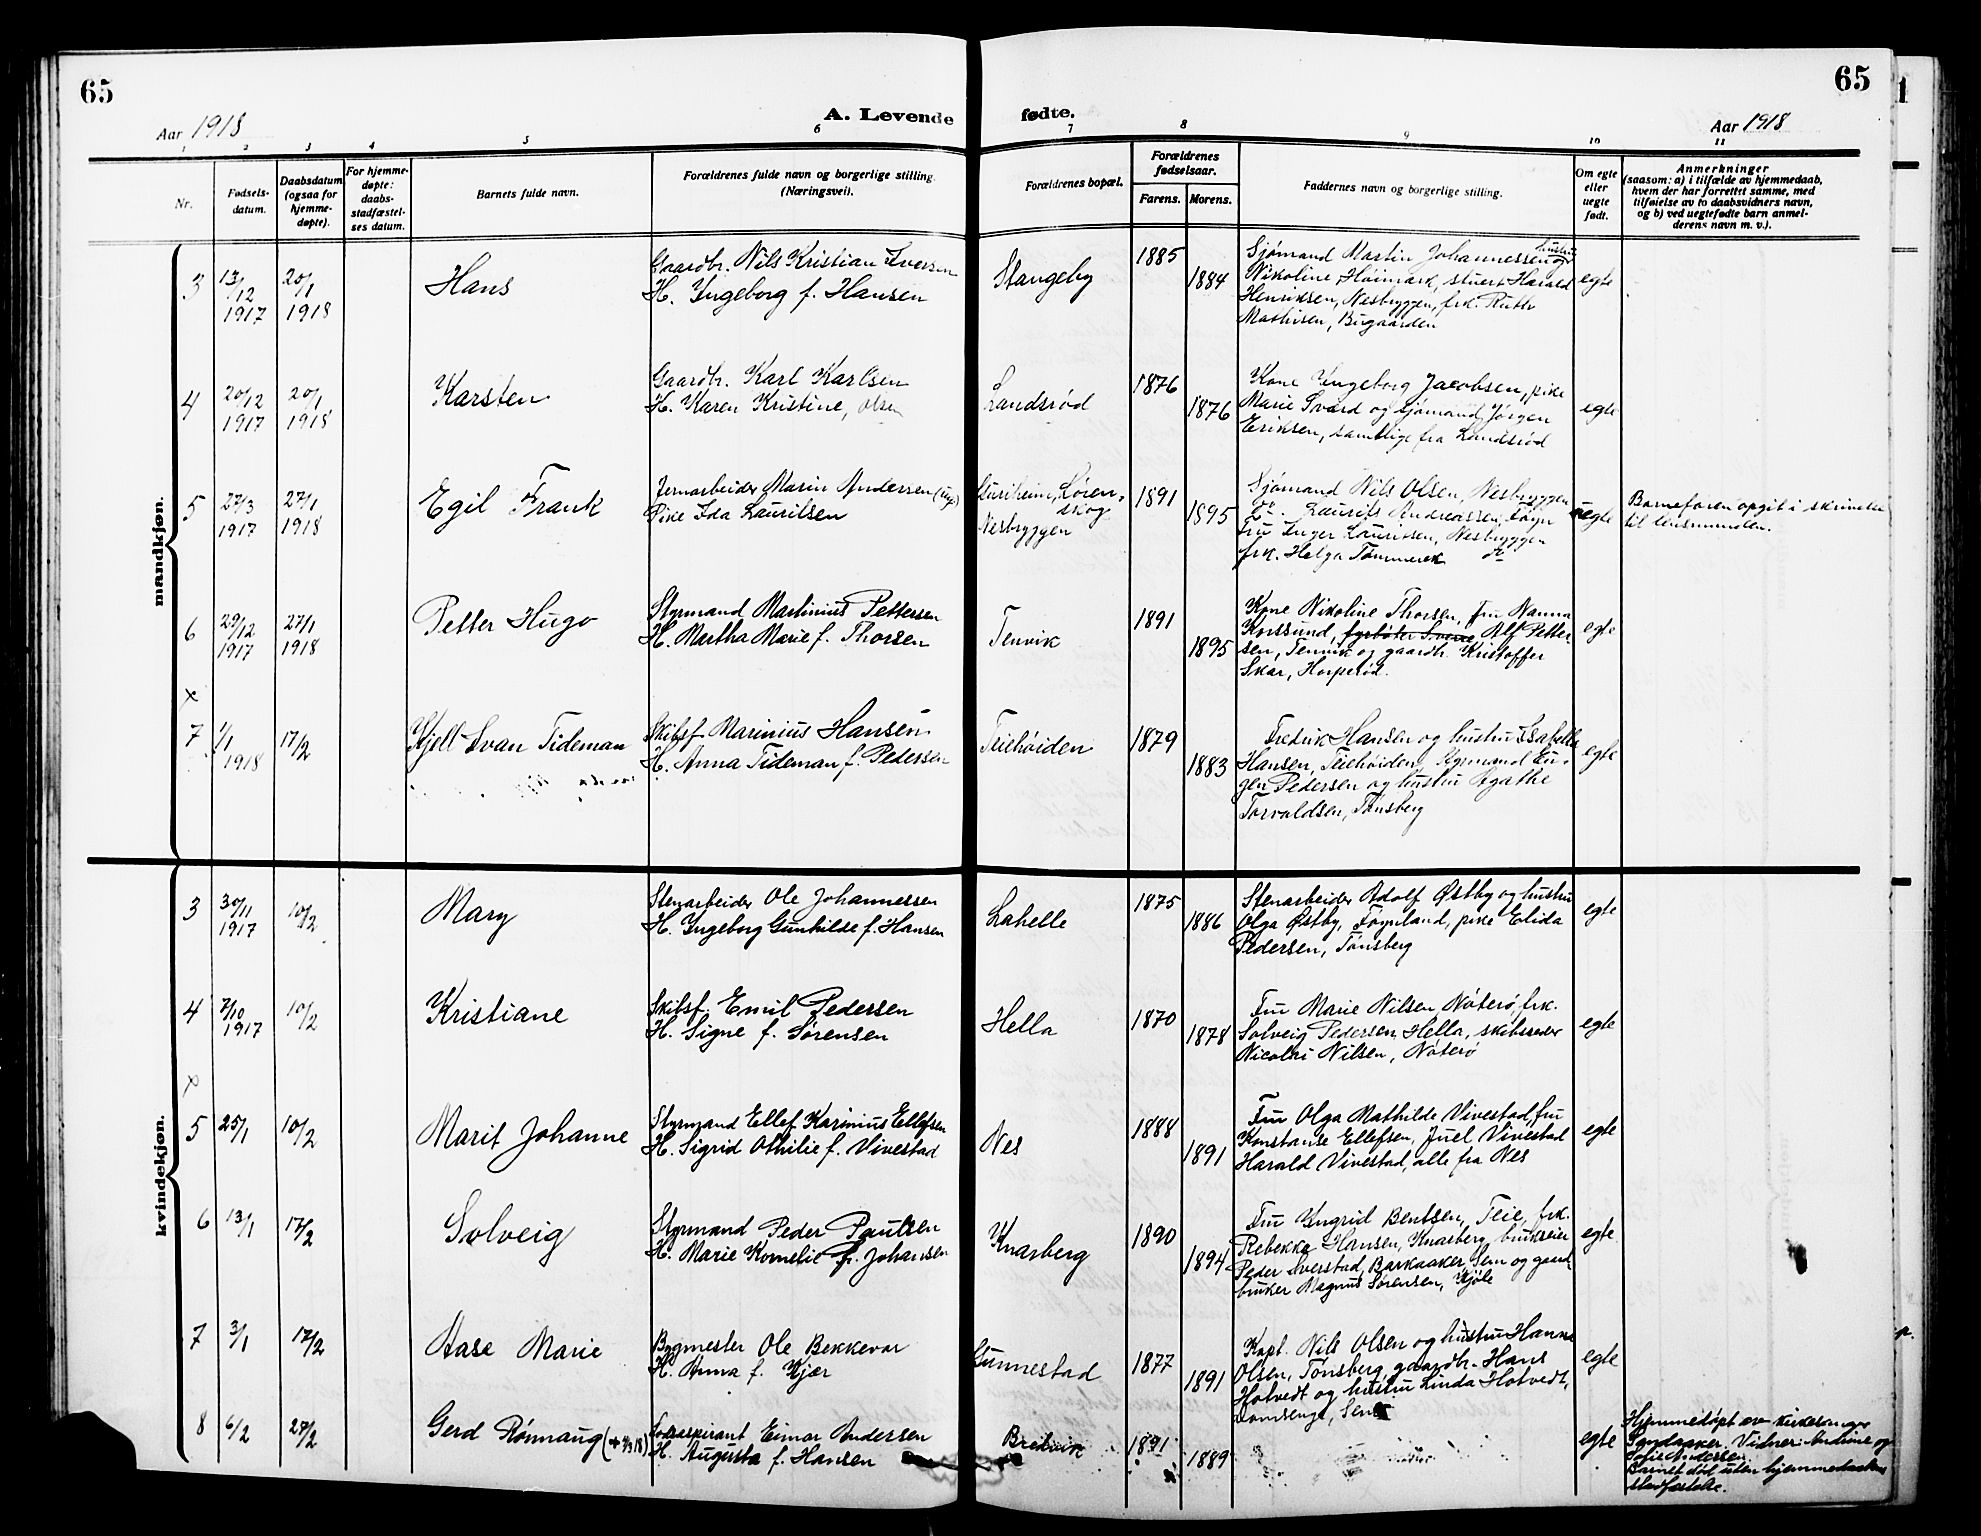 65
65
Aar 1918
A. Levende
fødte.
Aar 1918
1 2 3 4 5 6 7 8 9 10 11
Nr.
Fødsels-
datum.
Daabsdatum
(ogsaa for
hjemme-
døpte).
For hjemme-
døpte:
daabs-
stadfæstel-
ses datum.
Barnets fulde navn.
Forældrenes fulde navn og borgerlige stilling.
(Næringsvei).
Forældrenes bopæl.
Forældrenes
fødselsaar.
Farens. Morens.
Faddernes navn og borgerlige stilling.
Om egte
eller
uegte
født.
Anmerkninger
(saasom: a) i tilfælde av hjemmedaab,
hvem der har forrettet samme, med
tilføielse av to daabsvidners navn,
og b) ved uegtefødte barn anmel-
derens navn m. v.).
mandkjøn.
3
13/12
1917
20/1
1918
Hans
Gaardbr. Nils Kristian Iversen
H. Ingeborg f. Hansen
Stangeby
1885
1884
Sjømand Martin Johannessen og hustru
Nikoline, Høimark, stuert Harald
Henriksen, Nesbryggen, frk. Ruth
Mathisen, Bugaarden
egte
4
20/12
1917
20/1
1918
Karsten
Gaardbr. Karl Karlsen
H. Karen Kristine, Olsen
Landsrød
1876
1876
Kone Ingeborg Jacobsen, pike
Marie Svard og sjømand Jørgen
Eriksen, samtlige fra Landsrød
egte
5
27/3
1917
27/1
1918
Egil Frank
Jernarbeider Marin Andersen (ug.)
Pike Ida Lauritsen
Løren-
skog
Nesbryggen
1891
1895
Sjømand Nils Olsen, Nesbryggen
do. Laurits Andreassen, Føyn
Fru Inger Lauritsen, Nesbryggen
frk. Helga Tømmerek do
uegte
Barnefaren opgit i skrivelse
til lensmanden.
6
29/12
1917
27/1
1918
Petter Hugo
Styrmand Martinius Pettersen
H. Martha Marie f. Thorsen
Tenvik
1891
1895
Kone Nikoline Thorsen, fru Nanna
Korssund, fyrbøter Sverre Alf Petter-
sen, Tenvik og gaardbr. Kristoffer
Skar, Horperød.
egte
x
7
1/1
1918
17/2
Kjell Svan Tideman
Skibsf. Marinius Hansen
H. Anna Tideman f. Pedersen
Teiehøiden
1879
1883
Fredrik Hansen og hustru Isabella
Hansen, Teiehøiden, Styrmand Eu-
gen Pedersen og hustru Agathe
Torvaldsen, Tønsberg
egte
kvindekjøn.
3
30/11
1917
10/2
Mary
Stenarbeider Ole Johannessen
H. Ingeborg Gunhilde f. Hansen
Lahelle
1875
1886
Stenarbeider Adolf Østby og hustru
Olga Østby, Føynland, pike Elida
Pedersen, Tønsberg
egte
4
7/10
1917
10/2
Kristiane
Skibsf. Emil Pedersen
H. Signe f. Sørensen
Hella
1870
1878
Fru Marie Nilsen, Nøterø, frk.
Solveig Pedersen, Hella, skibsreder
Nicolai Nilsen, Nøterø
egte
x
5
25/1
10/2
Marit Johanne
Styrmand Ellef Karinius Ellefsen
H. Sigrid Othilie f. Vivestad
Nes
1888
1891
Fru Olga Mathilde Vivestad, fru
Konstanse Ellefsen, Juel Vivestad
Harald Vivestad, alle fra Nes
egte
6
13/1
17/2
Solveig
Styrmand Peder Paulsen
H. Marie Kornelie f. Johansen
Knarberg
1890
1894
Fru Yngrid Bentsen, Teie, frk.
Rebekka Hansen, Knarberg, brukseier
Peder Sverstad, Barkaaker, Sem og gaard-
bruker Magnus Sørensen, Kjøle
egte
7
3/1
17/2
Aase Marie
Bygmester Ole Bekkevar
H. Anna f. Kjær
Gunnestad
1877
1891
Kapt. Nils Olsen og hustru Hanna
Olsen, Tønsberg, gaardbr. Hans
Hotvedt og hustru Linda Hotvedt,
Damsenge, Sem
egte
8
6/2
27/2
Gerd Rønnaug
H. Augusta f. Hansen
Einar Andersen
Bredvik
1891
1889
egte
Hjemmedøpt av kirkesanger
Sandaaker. Vidner: Andrine og
Sofie Andersen.
Barnet død uten hjemmedaabs
stadfæstelse.